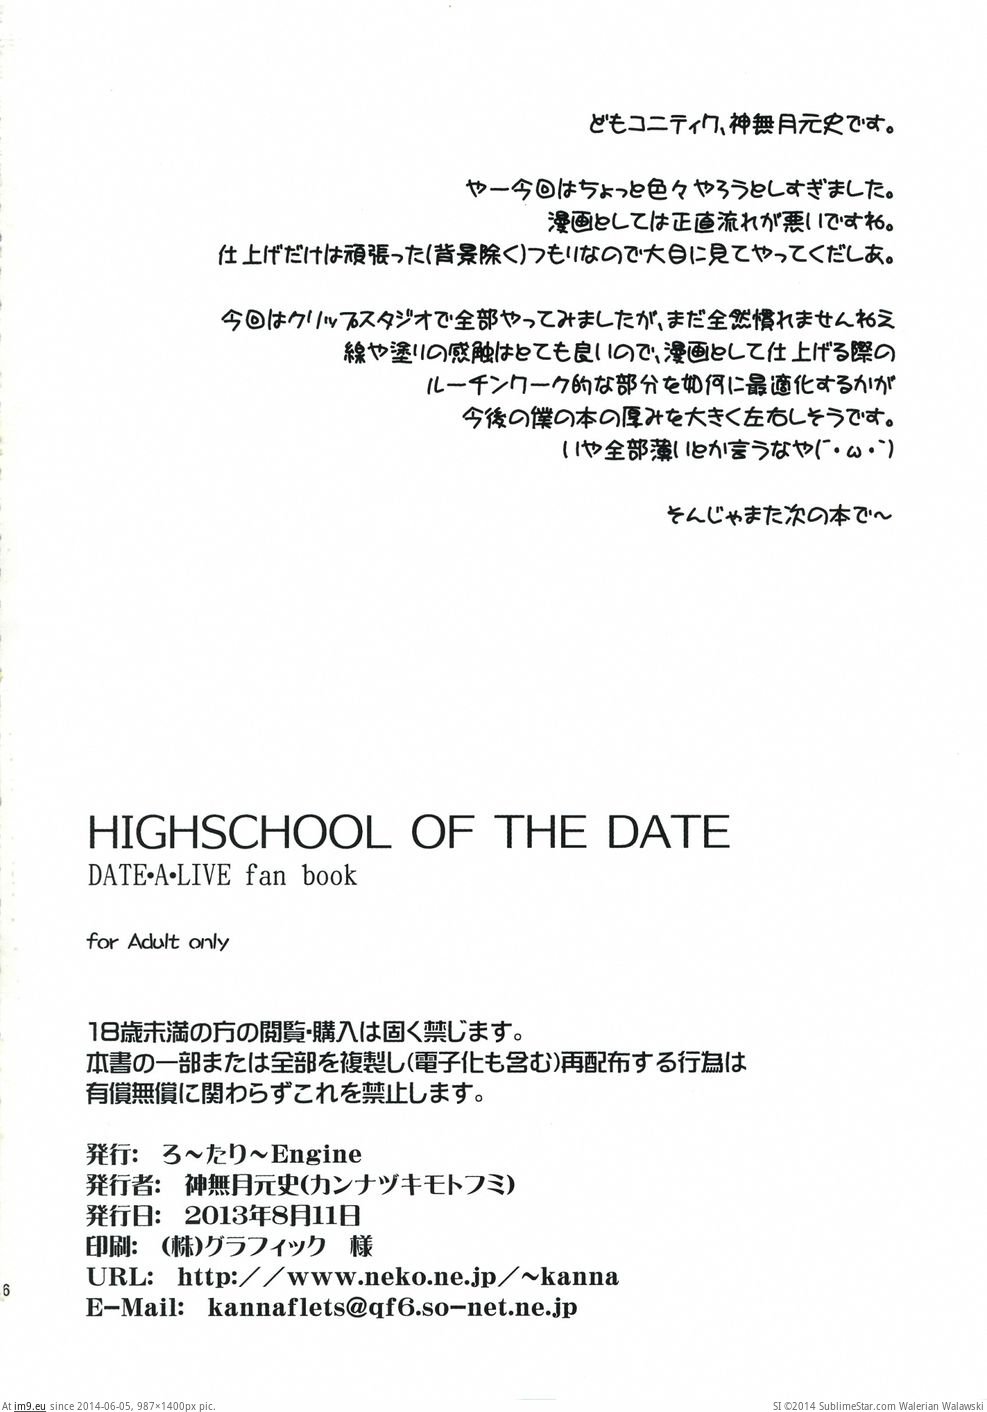 どもコニティク、神無月元史です。
やー今回はちょっと色々やろうとしすぎました。
漫画としては正直流れが悪いですね。
仕上げだけは頑張った(背景除く)つもりなので大目に見てやってくだしあ。
今回はクリップスタジオで全部やってみましたが、まだ全然慣れませんねえ
線や塗りの感触はとても良いので、漫画として仕上げる際の
ルーチンワーク的な部分を如何に最適化するかが
今後の僕の本の厚みを大きく左右しそうです。
いや全部薄いとか言うなや(´・ω・`)
そんじゃまた次の本で～
HIGHSCHOOL OF THE DATE
DATE•A•LIVE fan book
for Adult only
18歳未満の方の閲覧・購入は固く禁じます。
本書の一部または全部を複製し(電子化も含む)再配布する行為は
有償無償に関わらずこれを禁止します。
発行: ろ～たり～Engine
発行者: 神無月元史(カンナヅキモトフミ)
発行日: 2013年8月11日
印刷: (株)グラフィック 様
URL: http://www.neko.ne.jp/~kanna
E-Mail: kannaflets@qf6.so-net.ne.jp
6
At im9.eu since 2014-06-05, 987×1400px pic.
SI ©2014 SublimeStar.com Walerian Walawski